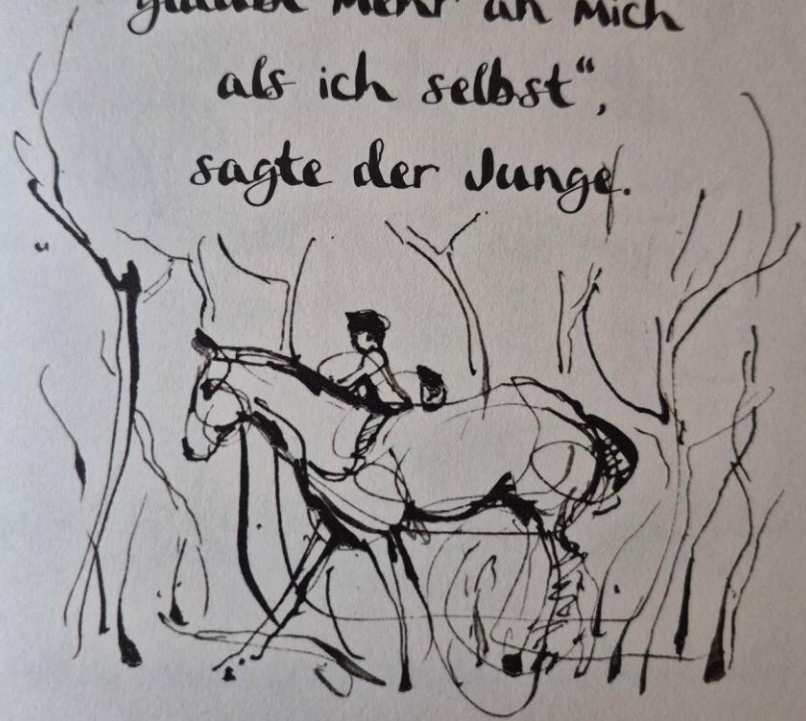 glaubt mehr an mich
als ich selbst“,
sagte der Junge.